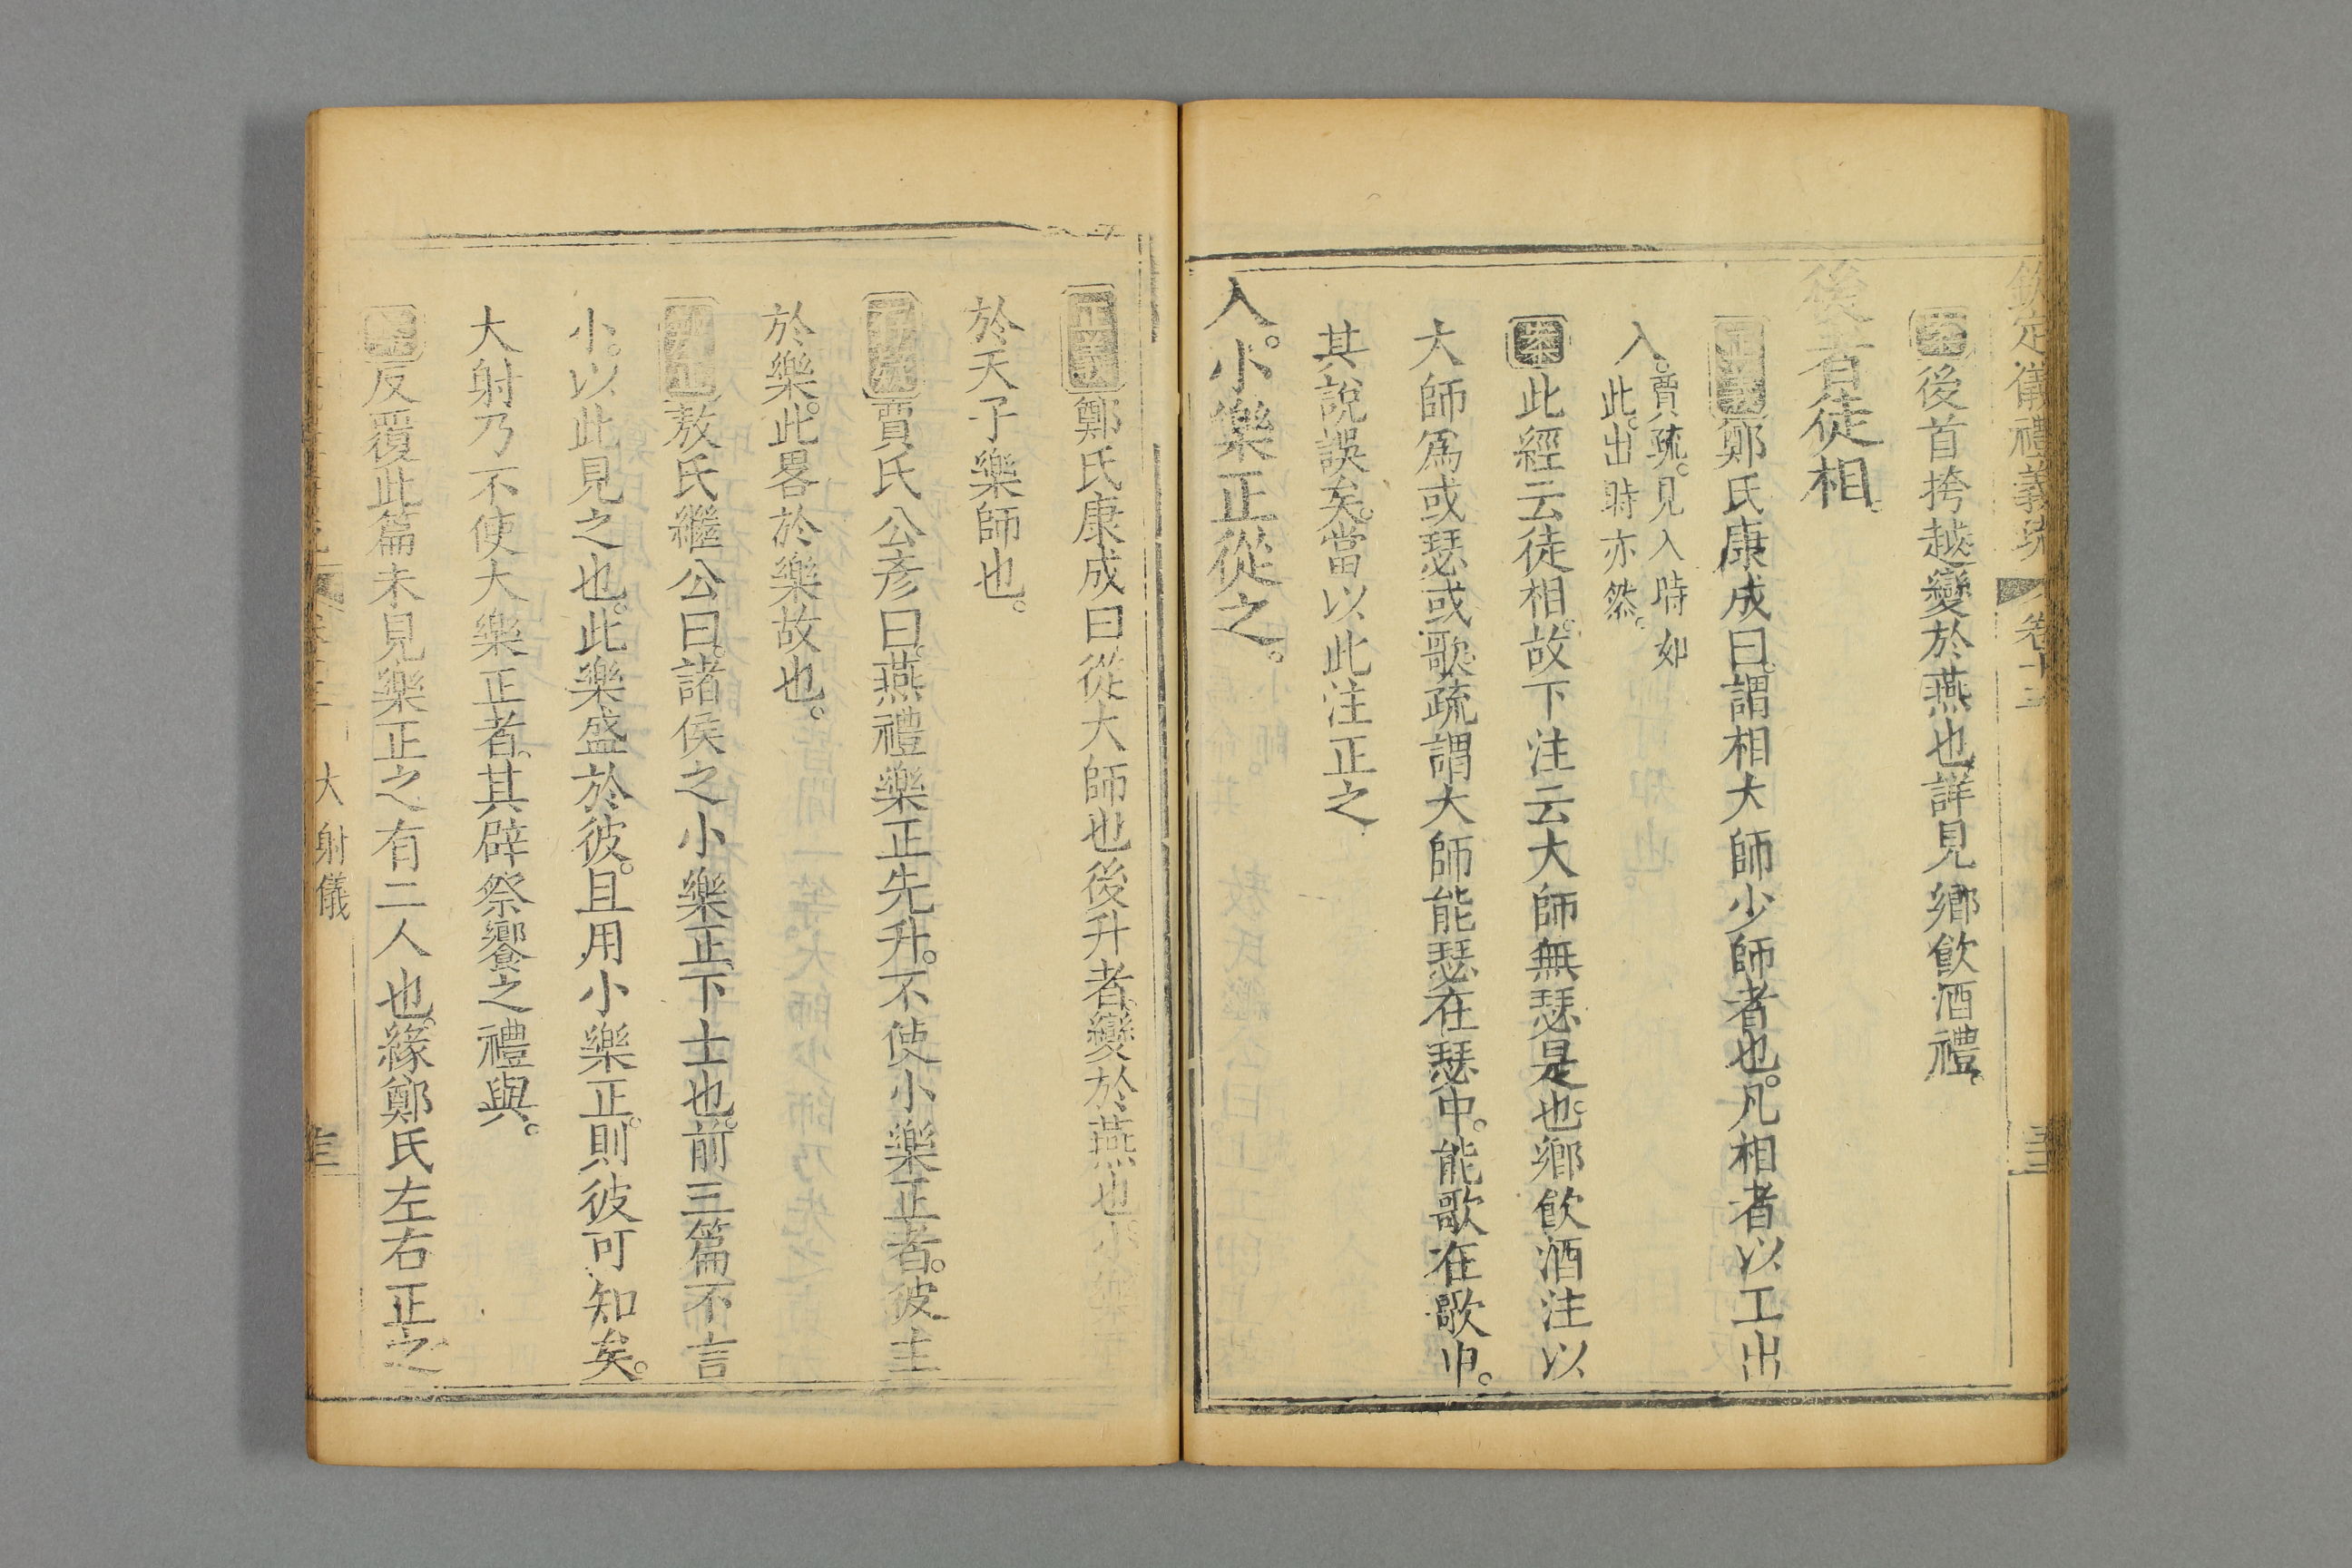 欽定儀禮義疏 卷十三
案後首挎越變於燕也詳見鄉飲酒禮。
後者徒相。
正義鄭氏康成曰。謂相大師少師者也。凡相者以工出
入。賈疏。見入時如
此。出時亦然。
案此經云徒相。故下注云大師無瑟是也。鄉飲酒注以
大師爲或瑟或歌。疏謂大師能瑟在瑟中。能歌在歌中。
其說誤矣。當以此注正之。
入。小樂正從之。
正義鄭氏康成曰從大師也後升者。變於燕也。小樂正
於天子樂師也。
賈氏公彥曰。燕禮樂正先升。不使小樂正者。彼主
於樂。此畧於樂故也。
敖氏繼公曰。諸侯之小樂正。下士也。前三篇不言
小。以此見之也。此樂盛於彼。且用小樂正。則彼可知矣。
大射乃不使大樂正者。其辟祭饗之禮與。
案反覆此篇未見樂正之有二人也。緣鄭氏左右正之
大射儀